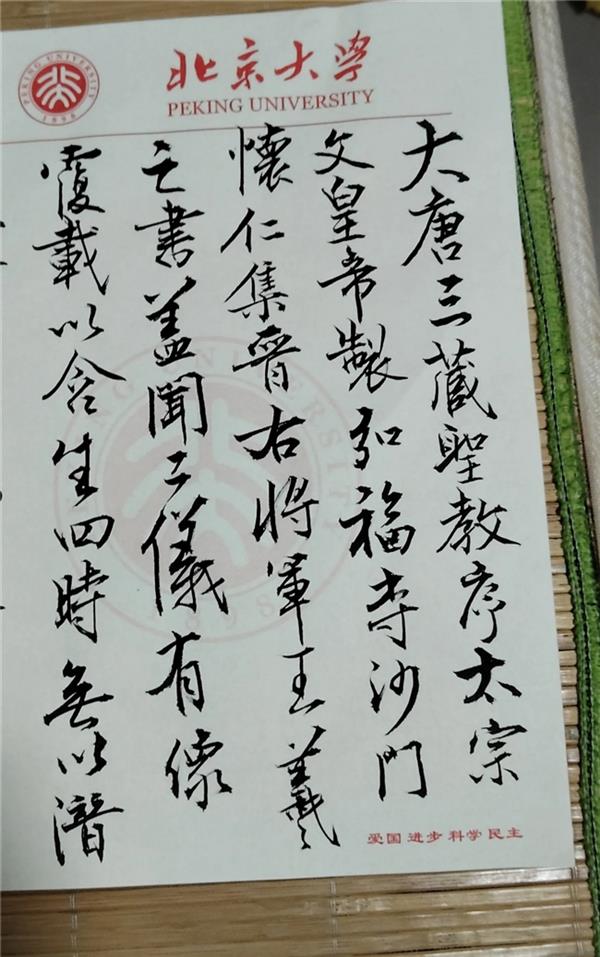 北京大学
PEKING UNIVERSITY
PEKING UNIVERSITY
1898
大唐三藏聖教序太宗
文皇帝製弘福寺沙門
懷仁集晋右將軍王羲
之書蓋聞二儀有像
覆載以含生四時無以潛
爱国 进步 科学 民主